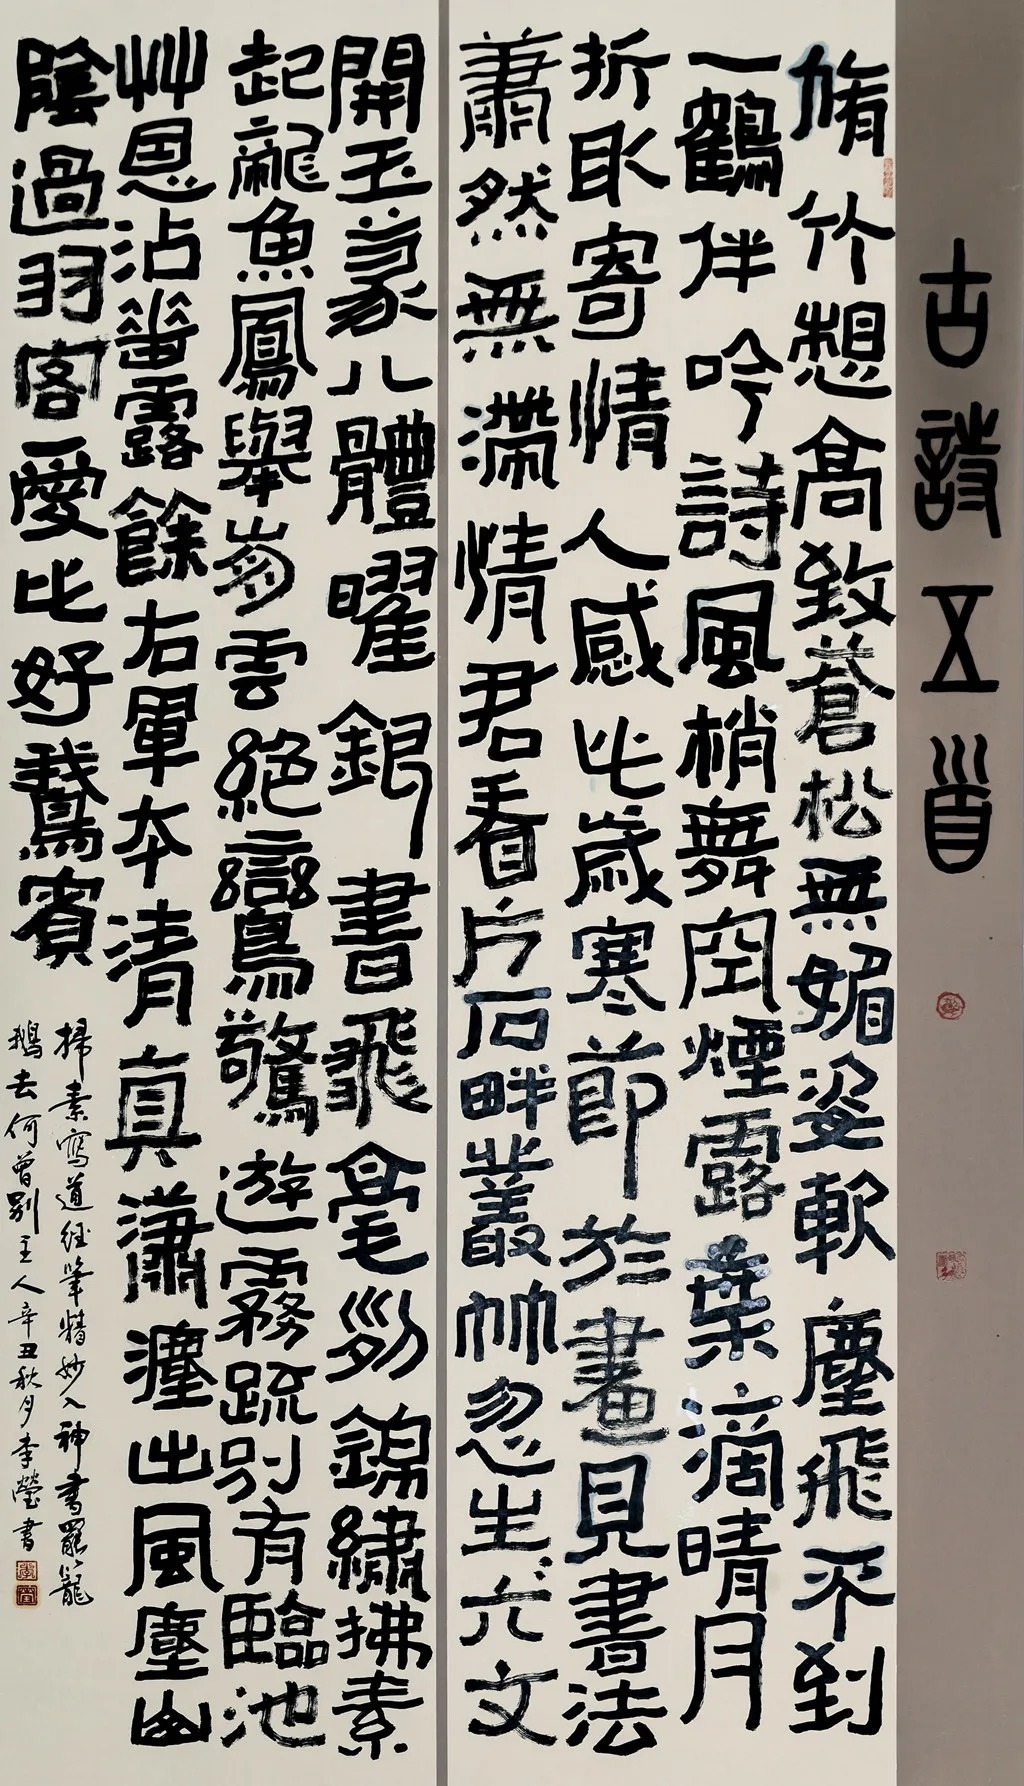 古詩五首
脩竹想高致蒼松無媚姿軟塵飛不到
一鶴伴吟詩風梢舞空煙露葉滴晴月
折取寄情人感此歲寒節於畫見書法
蕭然無滯情君看片石畔叢竹忽生六文
開玉篆八體曜銀書飛毫列錦繡拂素
起龍魚鳳舉崩雲絕鸞驚遊霧疏別有臨池
艸恩沾垂露餘右軍本清真瀟灑出風塵山
陰過羽客愛此好鵞賓
掃素寫道經筆精妙入神書罷籠
鵝去何曾別主人辛丑秋月李瑩書